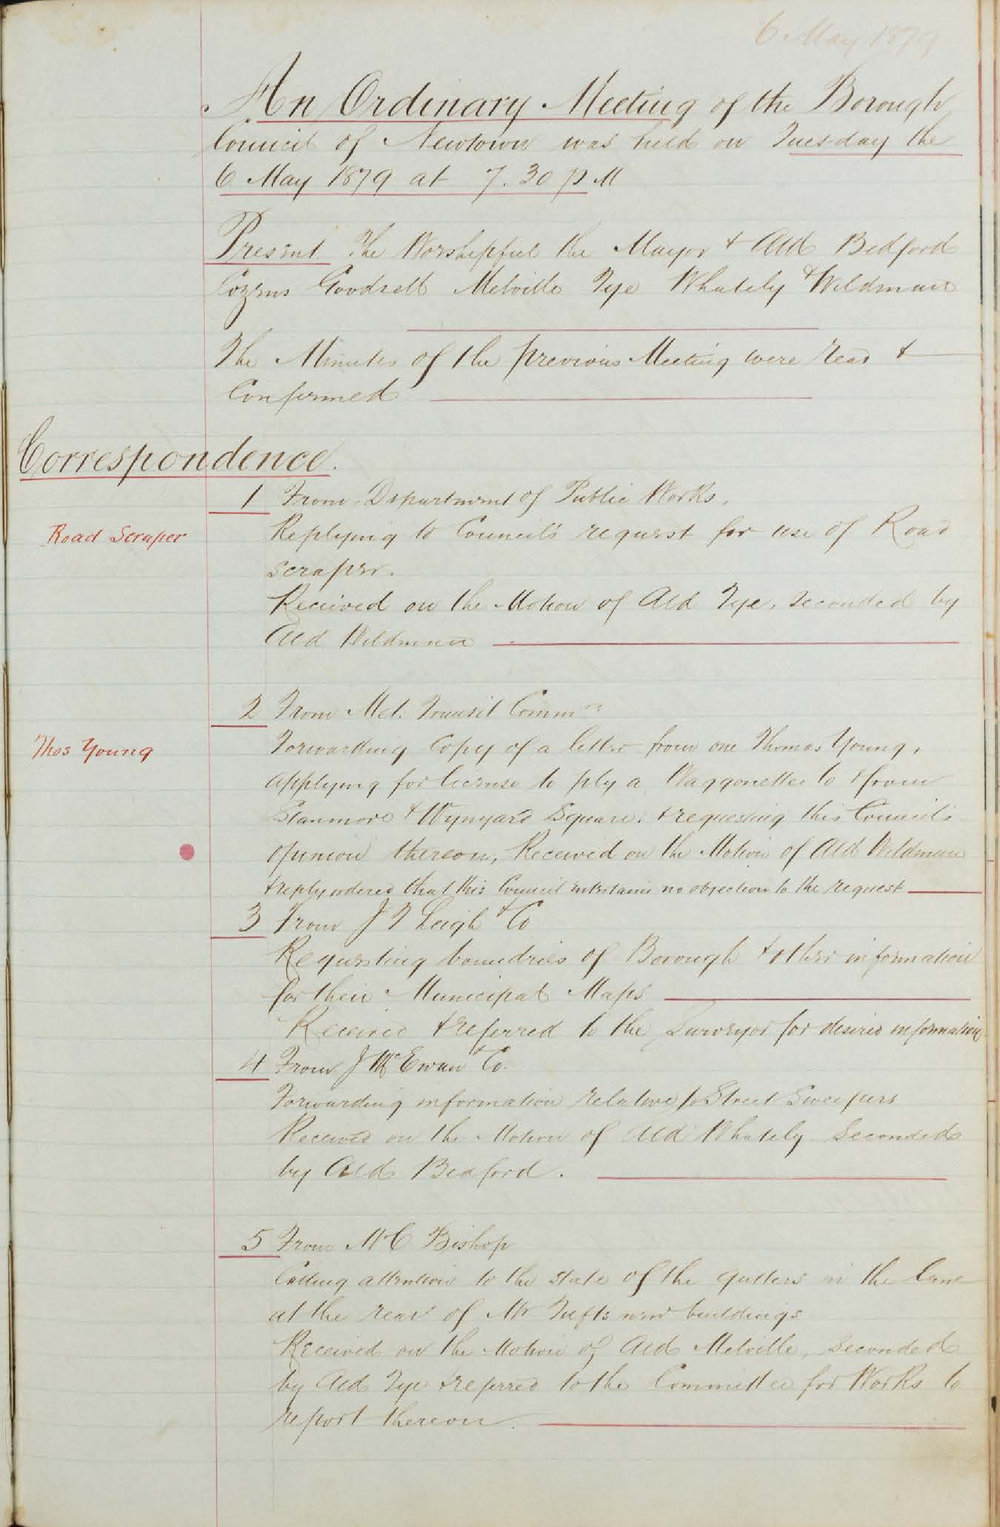 6 May 1879
An Ordinary Meeting of the Borough
Council of Newtown was held on Tuesday the
6 May 1879 at 7.30 p M
Present The Worshipful the Mayor & Ald Bedford
Cozens Goodsell Melville Tye Whately & Wildman
The Minutes of the previous Meeting were read &
Confirmed
Correspondence.
1 From Department of Public Works.
Road Scraper
Replying to Council's request for use of Road
scraper.
Received on the Motion of Ald Tye, seconded by
Ald Wildman
2 From Met. Transit Commrs
Thos Young
Forwarding Copy of a letter from one Thomas Young,
applying for license to ply a Waggonette to & from
Stanmore & Wynyard Square. & requesting this Council's
opinion thereon, Received on the Motion of Ald Wildman
& reply ordered that this Council entertain no objection to the request
3 From J T Leigh & Co
Requesting boundries of Borough & other information
for their Municipal Maps
Received & referred to the Surveyor for desired information
4 From J McEwan & Co.
Forwarding information relative to Street Sweepers
Received on the Motion of Ald Whately Seconded
by Ald Bedford.
5 From Bishop
Calling attention to the state of the gutters in the lane
at the rear of Mr Tufts new buildings
Received on the Motion of Ald Melville, seconded
by Ald Tye & referred to the Committee for Works to
report thereon.